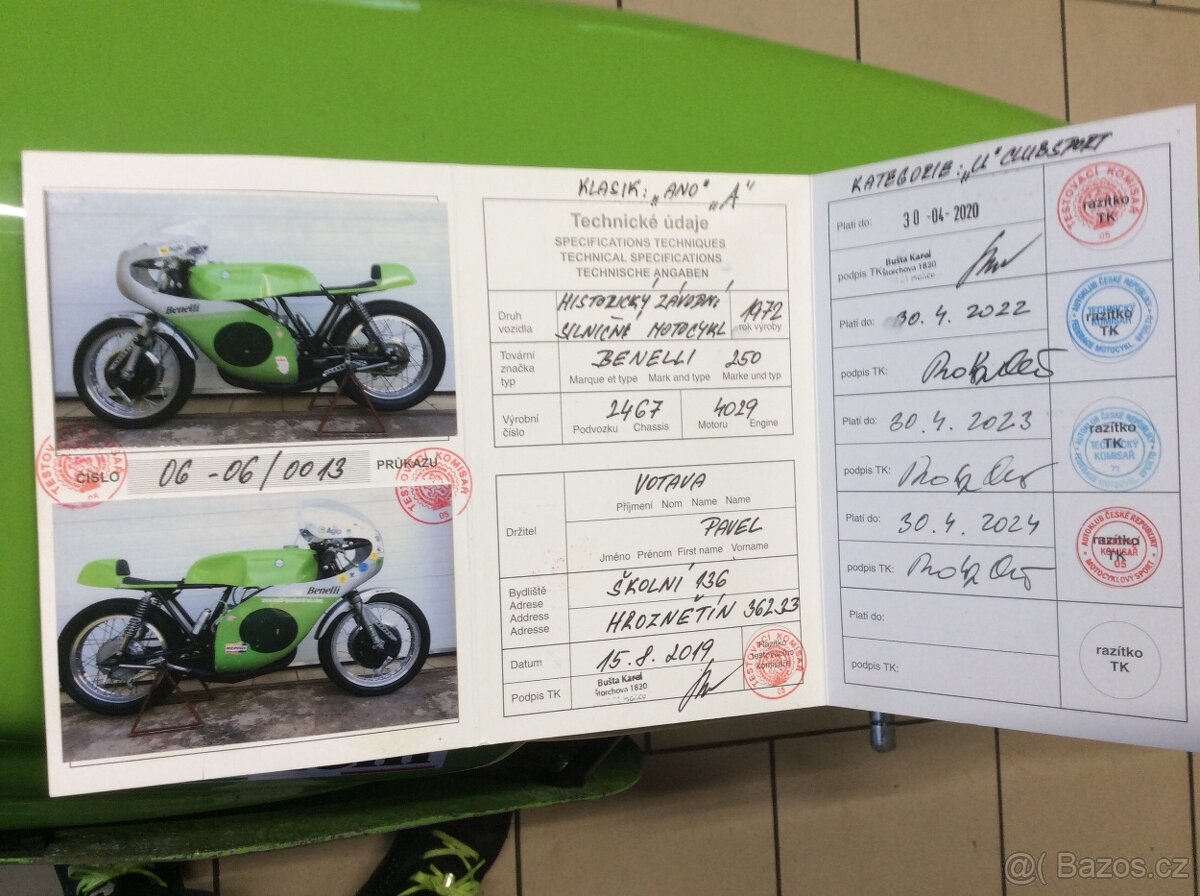 Benelli
ČÍSLO 06-06/0013 PRŮKAZU
TESTOVACÍ KOMISAŘ
05
TESTOVACÍ KOMISAŘ
05
Benelli
KLASIK: „ANO" „A"
Technické údaje
SPECIFICATIONS TECHNIQUES
TECHNICAL SPECIFICATIONS
TECHNISCHE ANGABEN
Druh vozidla
HISTORICKÝ ZÁVODNÍ
SILNIČNÍ MOTOCYKL
1972
rok výroby
Tovární značka typ
BENELLI 250
Marque et type Mark and type Marke und typ
Výrobní číslo
2467
Podvozku Chassis
4029
Motoru Engine
Držitel
VOTAVA
Příjmení Nom Name Name
PAVEL
Jméno Prénom First name Vorname
Bydliště
Adrese
Address
Adresse
ŠKOLNÍ 136
HROZNĚTÍN 36233
Datum
15.8.2019
Podpis TK
Bušta Karel
Štorchova 1820
Razítko
testovacího
komisaře
TESTOVACÍ KOMISAŘ
KATEGORIE: „U" CLUBSPORT
Platí do: 30-04-2020
podpis TK:
Bušta Karel
Štorchova 1820
TESTOVACÍ KOMISAŘ
razítko
TK
05
Platí do: 30.4.2022
podpis TK:
AUTOKLUB ČESKÉ REPUBLIKY
TECHNICKÝ
KOMISAŘ
razítko
TK
FEDERACE MOTOCYKL. SPORTU
Platí do: 30.4.2023
podpis TK:
razítko
TK
TECHNICKÝ
KOMISAŘ
71
Platí do: 30.4.2024
podpis TK:
AUTOKLUB ČESKÉ REPUBLIKY
razítko
TK
KOMISAŘ
05
MOTOCYKLOVÝ SPORT
Platí do:
podpis TK:
razítko
TK
@( Bazos.cz